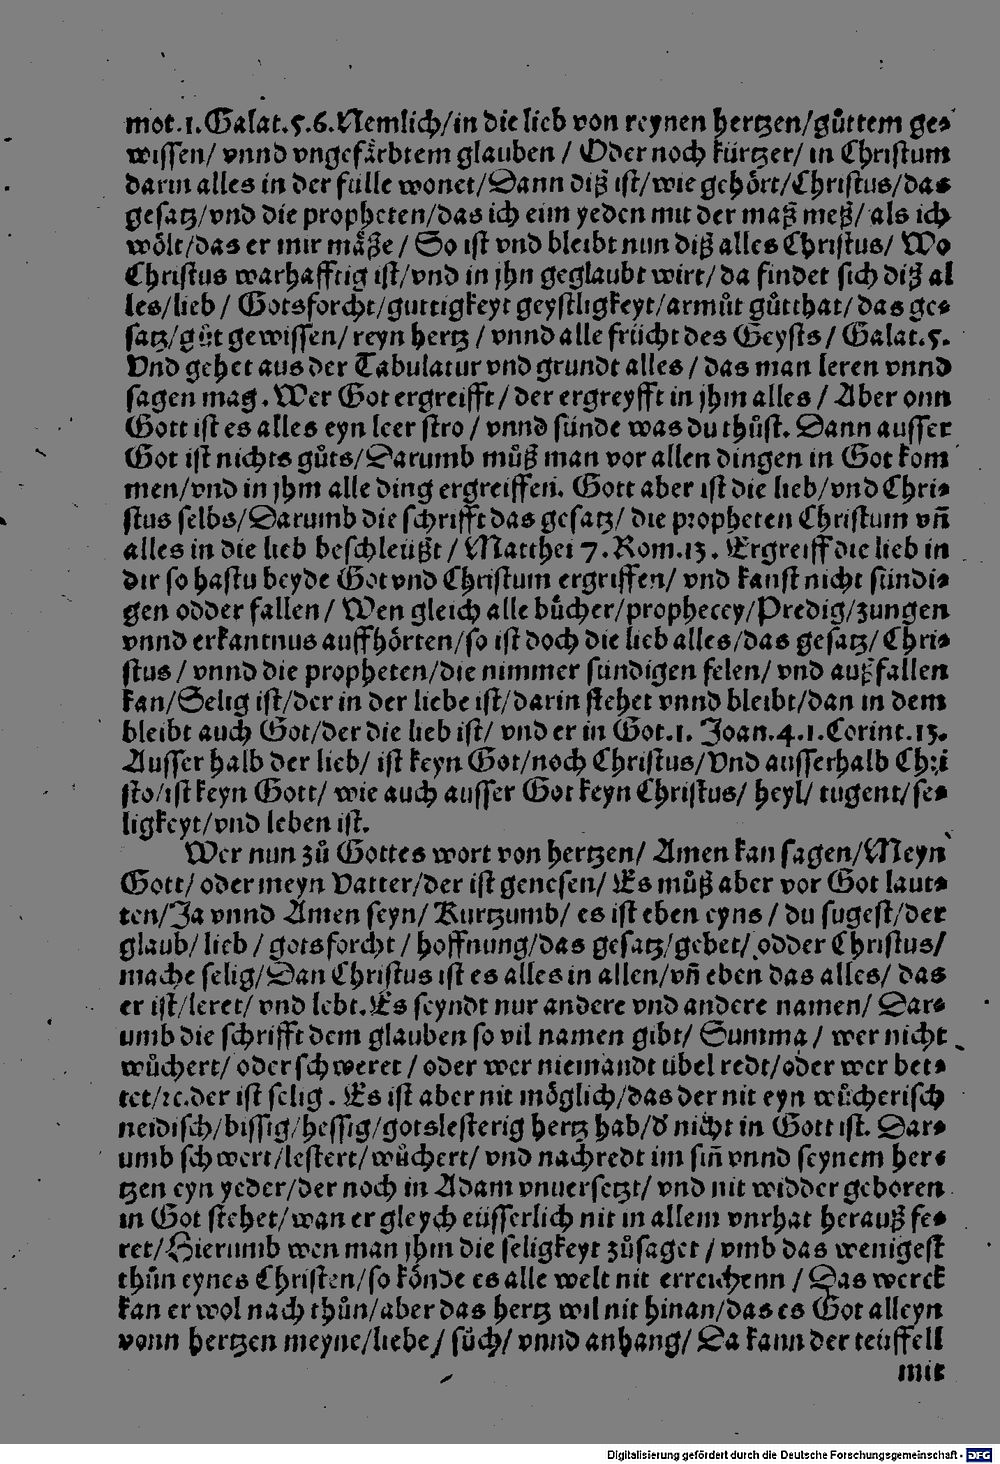 mot.1.Galat.5.6.Nemlich/in die lieb von reynen hertzen/gůttem ge⸗
wissen/ vnnd vngefärbtem glauben / Oder noch kürtzer/ in Christum
darin alles in der fulle wonet/Dann diß ist/wie gehört/Christus/das
gesatz/vnd die propheten/das ich eim yeden mit der maß meß/ als ich
wölt/das er mir mäße / So ist vnd bleibt nun diß alles Christus/ Wo
Christus warhafftig ist/vnd in jhn geglaubt wirt/ da findet sich diß al
les/lieb / Gotsforcht/guttigkeyt geystligkeyt/armůt gůtthat/das ge⸗
satz/gůt gewissen/ reyn hertz / vnnd alle frücht des Geysts / Galat.5.
Vnd gehet aus der Tabulatur vnd grundt alles / das man leren vnnd
sagen mag. Wer Got ergreifft / der ergreyfft in jhm alles / Aber onn
Gott ist es alles eyn leer stro / vnnd sünde was du thůst. Dann ausser
Got ist nichts gůts/Darumb můß man vor allen dingen in Got kom
men/vnd in jhm alle ding ergreiffen. Gott aber ist die lieb/vnd Chri⸗
stus selbs/Darumb die schrifft das gesatz/ die propheten Christum vn̄
alles in die lieb beschleüßt / Matthei 7. Rom.13. Ergreiff die lieb in
dir so hastu beyde Got vnd Christum ergriffen/ vnd kanst nicht sündi⸗
gen odder fallen / Wen gleich alle bůcher/prophecey/Predig/zungen
vnnd erkantnus auffhörten/so ist doch die lieb alles/das gesatz/ Chri⸗
stus / vnnd die propheten/die nimmer sündigen felen/ vnd auß fallen
kan/Selig ist/der in der liebe ist/darin stehet vnnd bleibt/dan in dem
bleibt auch Got/der die lieb ist/ vnd er in Got.1. Joan.4.1.Corint.13.
Ausser halb der lieb/ ist keyn Got/noch Christus/Vnd ausserhalb Chri
sto/ist keyn Gott/ wie auch ausser Got keyn Christus/ heyl/ tugent/se⸗
ligkeyt/vnd leben ist.
Wer nun zů Gottes wort von hertzen/ Amen kan sagen/Meyn
Gott/ oder meyn Vatter/der ist genesen/ Es můß aber vor Got laut⸗
ten/Ja vnnd Amen seyn/ Kurtzumb/ es ist eben eyns / du sugest/der
glaub/ lieb / gotsforcht / hoffnung/das gesatz/gebet/ odder Christus/
mache selig/Dan Christus ist es alles in allen/vn̄ eben das alles/ das
er ist/leret/ vnd lebt.Es seyndt nur andere vnd andere namen/ Dar⸗
umb die schrifft dem glauben so vil namen gibt/ Summa / wer nicht
wůchert/ oder schweret / oder wer niemandt übel redt/oder wer bet⸗
tet/ꝛc.der ist selig. Es ist aber nit möglich/das der nit eyn wůcherisch
neidisch/bissig/hessig/gotslesterig hertz hab/d̕ nicht in Gott ist. Dar⸗
umb schwert/lestert/wůchert/ vnd nachredt im sin̄ vnnd seynem her⸗
tzen eyn yeder/der noch in Adam vnuersetzt/ vnd nit widder geboren
in Got stehet/wan er gleych eüsserlich nit in allem vnrhat herauß fe⸗
ret/Hierumb wen man jhm die seligkeyt zůsaget / vmb das wenigest
thůn eynes Christen/so könde es alle welt nit erreichenn / Das werck
kan er wol nach thůn/aber das hertz wil nit hinan/das es Got alleyn
vonn hertzen meyne/liebe/ sůch/ vnnd anhang/ Da kann der teüffell
mit
Digitalisierung gefördert durch die Deutsche Forschungsgemeinschaft - DFG